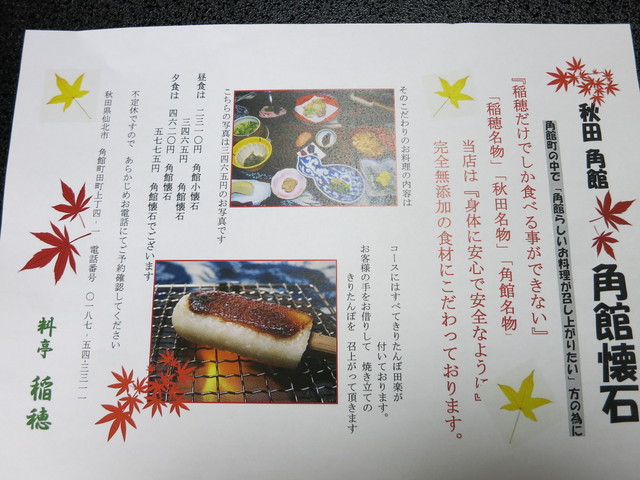 秋田 角館 角館懐石
角館町の中で「角館らしいお料理が召し上がりたい」方の為に
『稲穂だけでしか食べる事ができない』
「稲穂名物」「秋田名物」「角館名物」
当店は『身体に安心で安全なように』
完全無添加の食材にこだわっております。
そのこだわりのお料理の内容は
こちらの写真は三四六五円のお写真です
コースにはすべてきりたんぽ田楽が
付いております。
お客様の手をお借りして 焼き立ての
きりたんぽを 召上がって頂きます
昼食は 二三一〇円 角館小懐石
三四六五円 角館懐石
夕食は 四六二〇円 角館懐石
五七七五円 角館懐石でございます
不定休ですので あらかじめお電話にてご予約確認してください
秋田県仙北市 角館町田町上丁四‐一 電話番号 〇一八七‐五四‐三三一一
料亭 稲穂